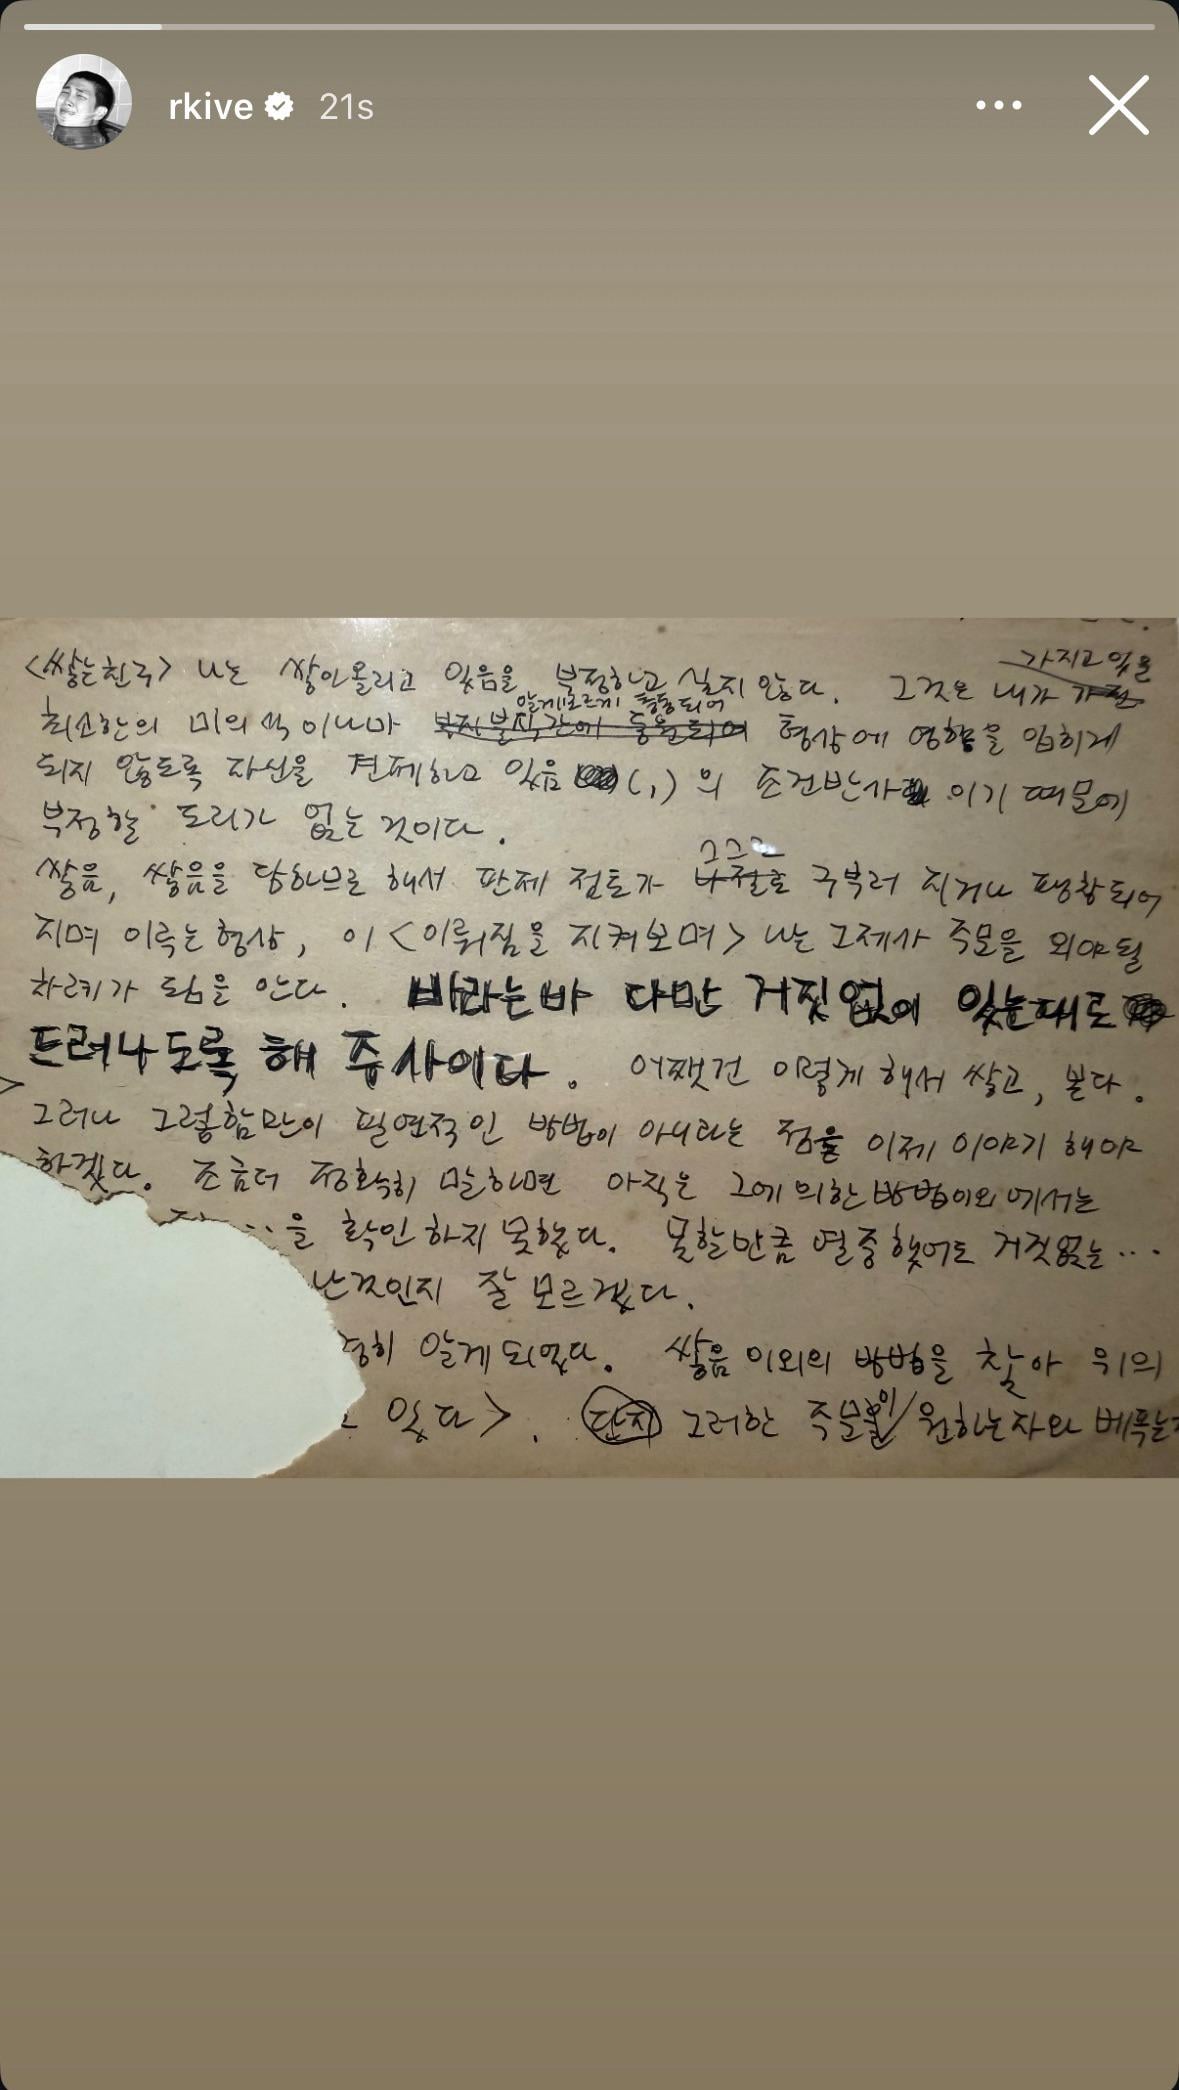 rkive 21s
<쌓는친구> 나는 쌓아올리고 있음을 부정하고 싶지 않다. 그것은 내가 가지고 있을
최소한의 미의식이나마 알게모르게 형상에 영향을 입히게
되지 않도록 자신을 견제하고 있음 (,) 의 조건반사 이기 때문에
부정할 도리가 없는 것이다.
쌓음, 쌓음을 당하므로 해서 판제 점토가 그그로 구부러 지거나 팽창되어
지며 이룩는 형상, 이 <이뤄짐을 지켜보며> 나는 그제사 주문을 외야될
차례가 됨을 안다. 바라는바 다만 거짓없이 있는대로
드러나도록 해 주사이다. 어쨋건 이렇게 해서 쌓고, 본다.
그러나 그렇함만이 필연적인 방법이 아니라는 점을 이제 이야기 해야
하겠다. 조금더 정확히 말하면 아직은 그에 의한 방법이외에서는
··을 확인 하지 못했다. 못할만큼 열중했어도 거짓없는 ···
난것인지 잘 모르겠다.
히 알게 되었다. 쌓음 이외의 방법을 찾아 위의
있다>. 단지 그러한 주문이 원하는자와 베푸는